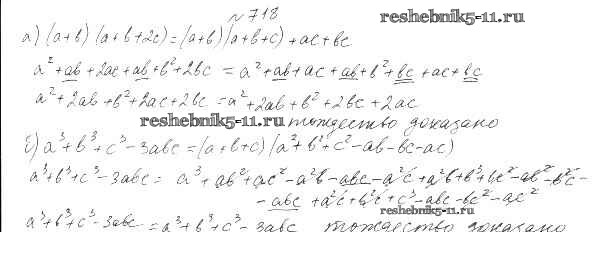 № 718
reshebnik5-11.ru
а) (a+b)(a+b+2c)=(a+b)(a+b+c)+ac+bc
a²+ab+2ac+ab+b²+2bc = a²+ab+ac+ab+b²+bc+ac+bc
a²+2ab+b²+2ac+2bc=a²+2ab+b²+2bc+2ac
reshebnik5-11.ru тождество доказано
б) a³+b³+c³-3abc=(a+b+c)(a²+b²+c²-ab-bc-ac)
a³+b³+c³-3abc= a³+ab²+ac²-a²b-abc-a²c+a²b+b³+bc²-ab²-b²c-
-abc+a²c+b²c+c³-abc-bc²-ac²
reshebnik5-11.ru
a³+b³+c³-3abc=a³+b³+c³-3abc тождество доказано